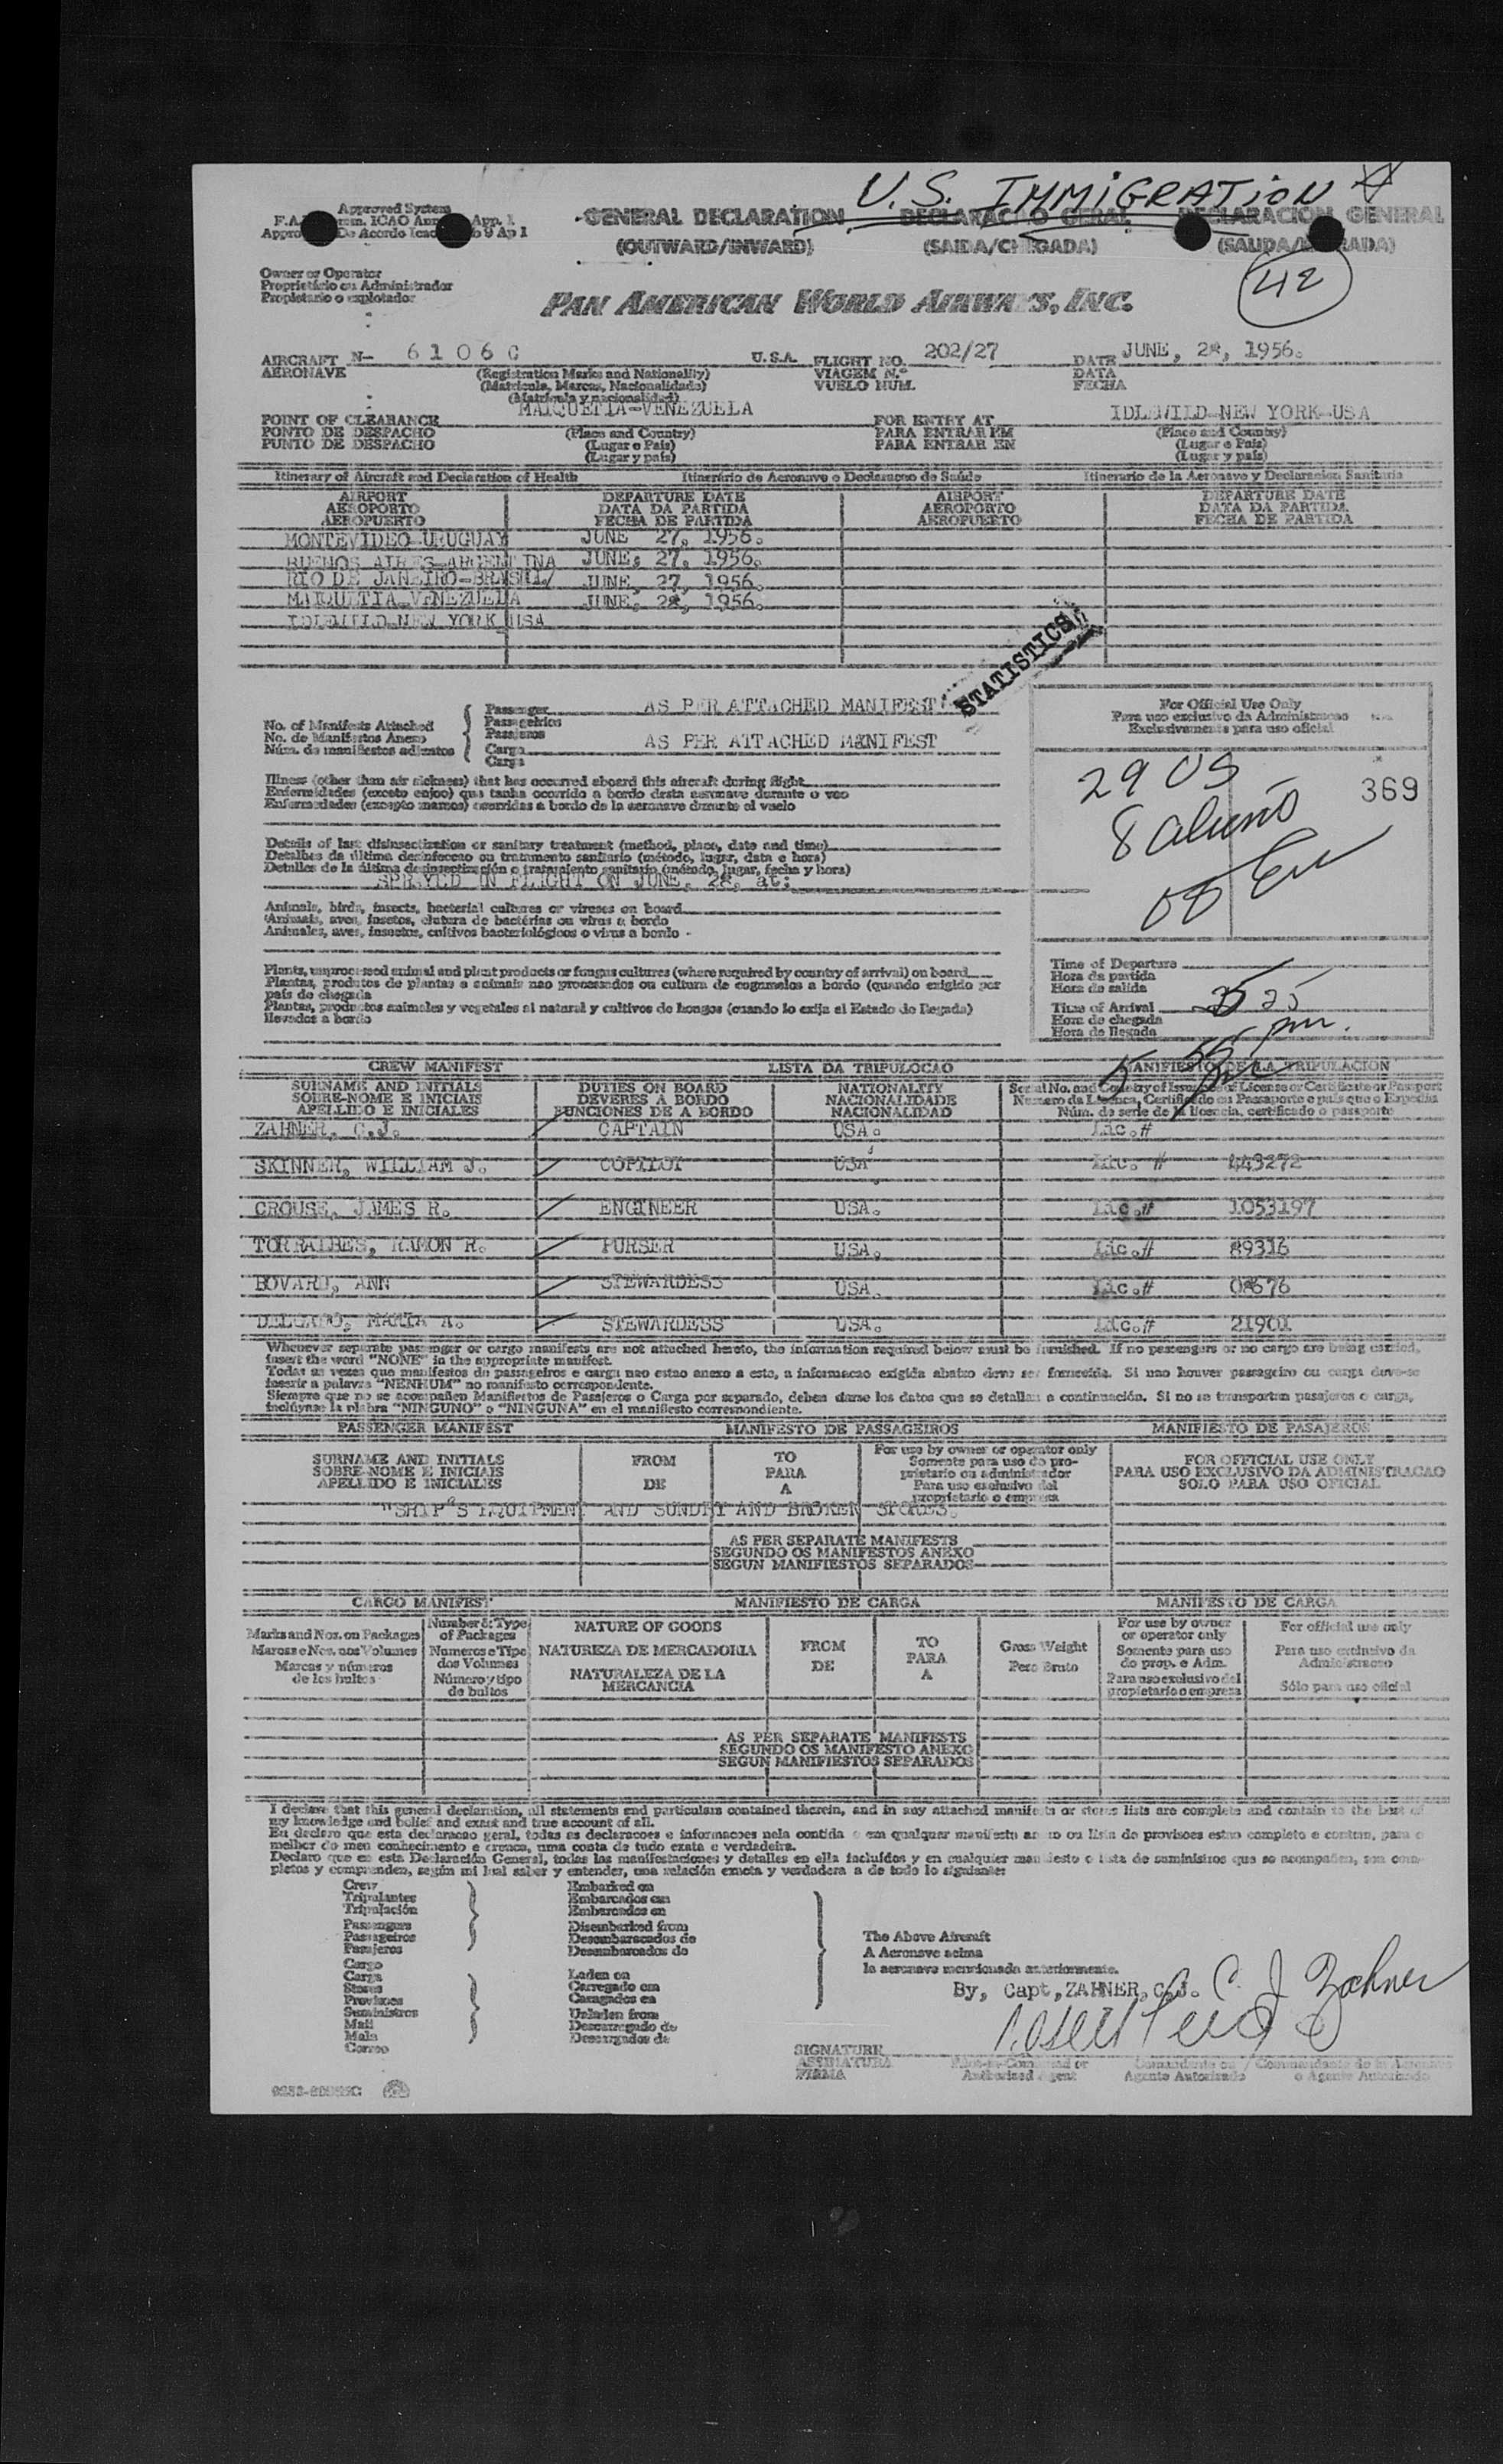 U.S. IMMIGRATION
Approved System
Appro De Acordo Icao 9 Ap 1
GENERAL DECLARATION DECLARACAO GERAL DECLARACION GENERAL
(OUTWARD/INWARD) (SAIDA/CHEGADA) (SALIDA/ RADA)
42
Owner or Operator
Proprietário ou Administrador
Propietario o explotador
PAN AMERICAN WORLD AIRWAYS, INC.
AIRCRAFT N- 6 1 0 6 C U.S.A. FLIGHT NO. 202/27 DATE JUNE, 28, 1956.
AERONAVE (Registration Marks and Nationality) VIAGEM N.º DATA
(Matricula, Marcas, Nacionalidade) VUELO NUM. FECHA
(Matrícula y nacionalidad)
MAIQUETIA-VENEZUELA IDLEWILD-NEW YORK-USA
POINT OF CLEARANCE FOR ENTRY AT
PONTO DE DESPACHO (Place and Country) PARA ENTRAR EM (Place and Country)
PUNTO DE DESPACHO (Lugar e País) PARA ENTRAR EN (Lugar e País)
(Lugar y país) (Lugar y país)
Itinerary of Aircraft and Declaration of Health Itinerário de Aeronave e Declaracao de Saúde Itinerario de la Aeronave y Declaracion Sanitaria
AIRPORT DEPARTURE DATE AIRPORT DEPARTURE DATE
AEROPORTO DATA DA PARTIDA AEROPORTO DATA DA PARTIDA
AEROPUERTO FECHA DE PARTIDA AEROPUERTO FECHA DE PARTIDA
MONTEVIDEO-URUGUAY JUNE 27, 1956.
BUENOS AIRES-ARGENTINA JUNE, 27, 1956.
RIO DE JANEIRO-BRASIL/ JUNE, 27, 1956.
MAIQUETIA-VENEZUELA JUNE, 28, 1956.
IDLEWILD-NEW YORK USA
STATISTICS
No. of Manifests Attached Passenger AS PER ATTACHED MANIFEST
No. de Manifestos Anexo Passageiros
Núm. de manifiestos adjuntos Pasajeros
Cargo AS PER ATTACHED MANIFEST
Carga
For Official Use Only
Para uso exclusivo da Administracao
Exclusivamente para uso oficial
29 US
369
8 aliens
Illness (other than air sickness) that has occurred aboard this aircraft during flight
Enfermidades (exceto enjoo) que tenha ocorrido a bordo desta aeronave durante o voo
Enfermedades (excepto mareos) ocurridas a bordo de la aeronave durante el vuelo
Details of last disinsectization or sanitary treatment (method, place, date and time)
Detalhes da última desinfeccao ou tratamento sanitario (método, lugar, data e hora)
Detalles de la última desinsectización o tratamiento sanitario (método, lugar, fecha y hora)
SPRAYED IN FLIGHT ON JUNE, 28, at:
Animals, birds, insects, bacterial cultures or viruses on board
Animais, aves, insetos, clutura de bactérias ou virus a bordo
Animales, aves, insectos, cultivos bacteriológicos o virus a bordo
Plants, unprocessed animal and plant products or fungus cultures (where required by country of arrival) on board
Plantas, produtos de plantas e animais nao processados ou cultura de cogumelos a bordo (quando exigido por
país de chegada
Plantas, productos animales y vegetales al natural y cultivos de hongos (cuando lo exija el Estado de llegada)
llevados a bordo
Time of Departure
Hora da partida
Hora de salida
Time of Arrival
Hora de chegada
Hora de llegada
CREW MANIFEST LISTA DA TRIPULOCAO MANIFIESTO DE LA TRIPULACION
SURNAME AND INITIALS DUTIES ON BOARD NATIONALITY Serial No. and Country of Issue of License or Certificate or Passport
SOBRE-NOME E INICIAIS DEVERES A BORDO NACIONALIDADE Numero da Licenca, Certificado ou Passaporte e país que o Expediu
APELLIDO E INICIALES FUNCIONES DE A BORDO NACIONALIDAD Núm. de serie de la licencia, certificado o pasaporte
ZAHNER, C.J. CAPTAIN USA. Lic.#
SKINNER, WILLIAM J. COPILOT USA Lic. # 443272
CROUSE, JAMES R. ENGINEER USA. Lic.# 1053197
TORRALBES, RAMON R. PURSER USA. Lic.# 89316
BOVARD, ANN STEWARDESS USA. Lic.# 08676
DELGADO, MARIA A. STEWARDESS USA. Lic.# 21901
Whenever separate passenger or cargo manifests are not attached hereto, the information required below must be furnished. If no passengers or no cargo are being carried,
insert the word "NONE" in the appropriate manifest.
Todas as vezes que manifestos de passageiros e carga nao estao anexo a esto, a informacao exigida abaixo deve ser fornecida. Si nao houver passageiro ou carga deve-se
inserir a palavra "NENHUM" no manifesto correspondente.
Siempre que no se acompañen Manifiestos de Pasajeros o Carga por separado, deben darse los datos que se detallan a continuación. Si no se transportan pasajeros o carga,
inclúyase la plabra "NINGUNO" o "NINGUNA" en el manifiesto correspondiente.
PASSENGER MANIFEST MANIFESTO DE PASSAGEIROS MANIFIESTO DE PASAJEROS
SURNAME AND INITIALS FROM TO For use by owner or operator only FOR OFFICIAL USE ONLY
SOBRE-NOME E INICIAIS PARA Somente para uso do pro- PARA USO EXCLUSIVO DA ADMINISTRACAO
APELLIDO E INICIALES DE A prietario ou administrador SOLO PARA USO OFICIAL
Para uso exclusivo del
propietario o empresa
"SHIP'S EQUIPMENT AND SUNDRY AND BROKEN STORES.
AS PER SEPARATE MANIFESTS
SEGUNDO OS MANIFESTOS ANEXO
SEGUN MANIFIESTOS SEPARADOS
CARGO MANIFEST MANIFIESTO DE CARGA MANIFESTO DE CARGA
Marks and Nos. on Packages Number & Type of Packages NATURE OF GOODS FROM TO Gross Weight For use by owner or operator only For official use only
Marcas e Nos. nos Volumes Numeros e Tipo dos Volumes NATUREZA DE MERCADORIA DE PARA Peso Bruto Somente para uso do prop. e Adm. Para uso exclusivo da Administracao
Marcas y números de los bultos Número y tipo de bultos NATURALEZA DE LA MERCANCIA A Para uso exclusivo del propietario o empresa Sólo para uso oficial
AS PER SEPARATE MANIFESTS
SEGUNDO OS MANIFESTO ANEXO
SEGUN MANIFIESTOS SEPARADOS
I declare that this general declaration, all statements and particulars contained therein, and in any attached manifests or stores lists are complete and contain to the best of
my knowledge and belief and exact and true account of all.
Eu declaro que esta declaracao geral, todas as declaracoes e informacoes nela contida e em qualquer manifesto anexo ou lista de provisoes estao completo e contem, para o
melhor do meu conhecimento e crenca, uma conta de tudo exata e verdadeira.
Declaro que en esta Declaración General, todas las manifestaciones y detalles en ella incluídos y en cualquier manifiesto o lista de suministros que se acompañen, son com-
pletos y comprenden, según mi leal saber y entender, una relación exacta y verdadera a de todo lo siguiente:
Crew Embarked on
Tripulantes Embarcados em
Tripulación Embarcados en
Passengers Disembarked from
Passageiros Desembaracados de
Pasajeros Desembarcados de
Cargo
Carga Laden on
Stores Carregado em
Provisoes Caragados en
Suministros Unladen from
Mail Descarregado de
Mala Descargados de
Correo
The Above Aircraft
A Aeronave acima
la aeronave mencionada anteriormente.
By, Capt, ZAHNER, C.J. C. J. Zahner
SIGNATURE
ASSINATURA Pilot-in-Command or Comandante ou / Commandante de la Aeronave
FIRMA Authorized Agent Agente Autorizado o Agente Autorizado